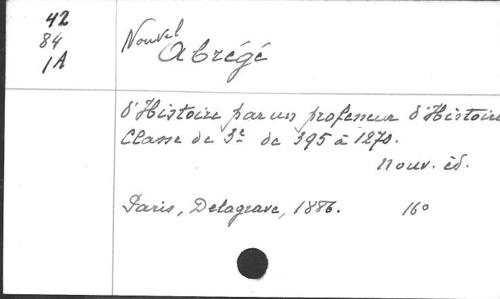 42
84
1A
Nouvel
Abrégé
d'Histoire par un professeur d'Histoire
Classe de 3e de 395 à 1270.
nouv. éd.
Paris, Delagrave, 1886. 16°